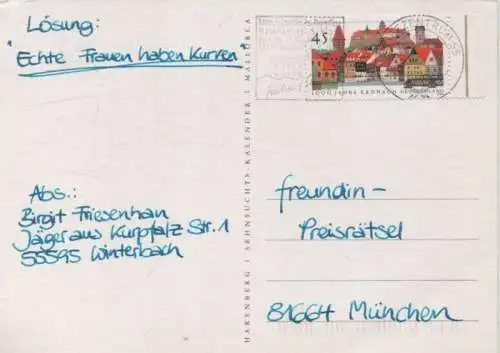 Lösung:
"Echte Frauen haben Kurven"
Abs.:
Birgit Friesenhan
Jäger aus Kurpfalz Str. 1
55595 Winterbach
HARENBERG | SEHNSUCHTS-KALENDER | MALLORCA
45
1000 JAHRE KRONACH DEUTSCHLAND
freundin-
Preisrätsel
81664 München